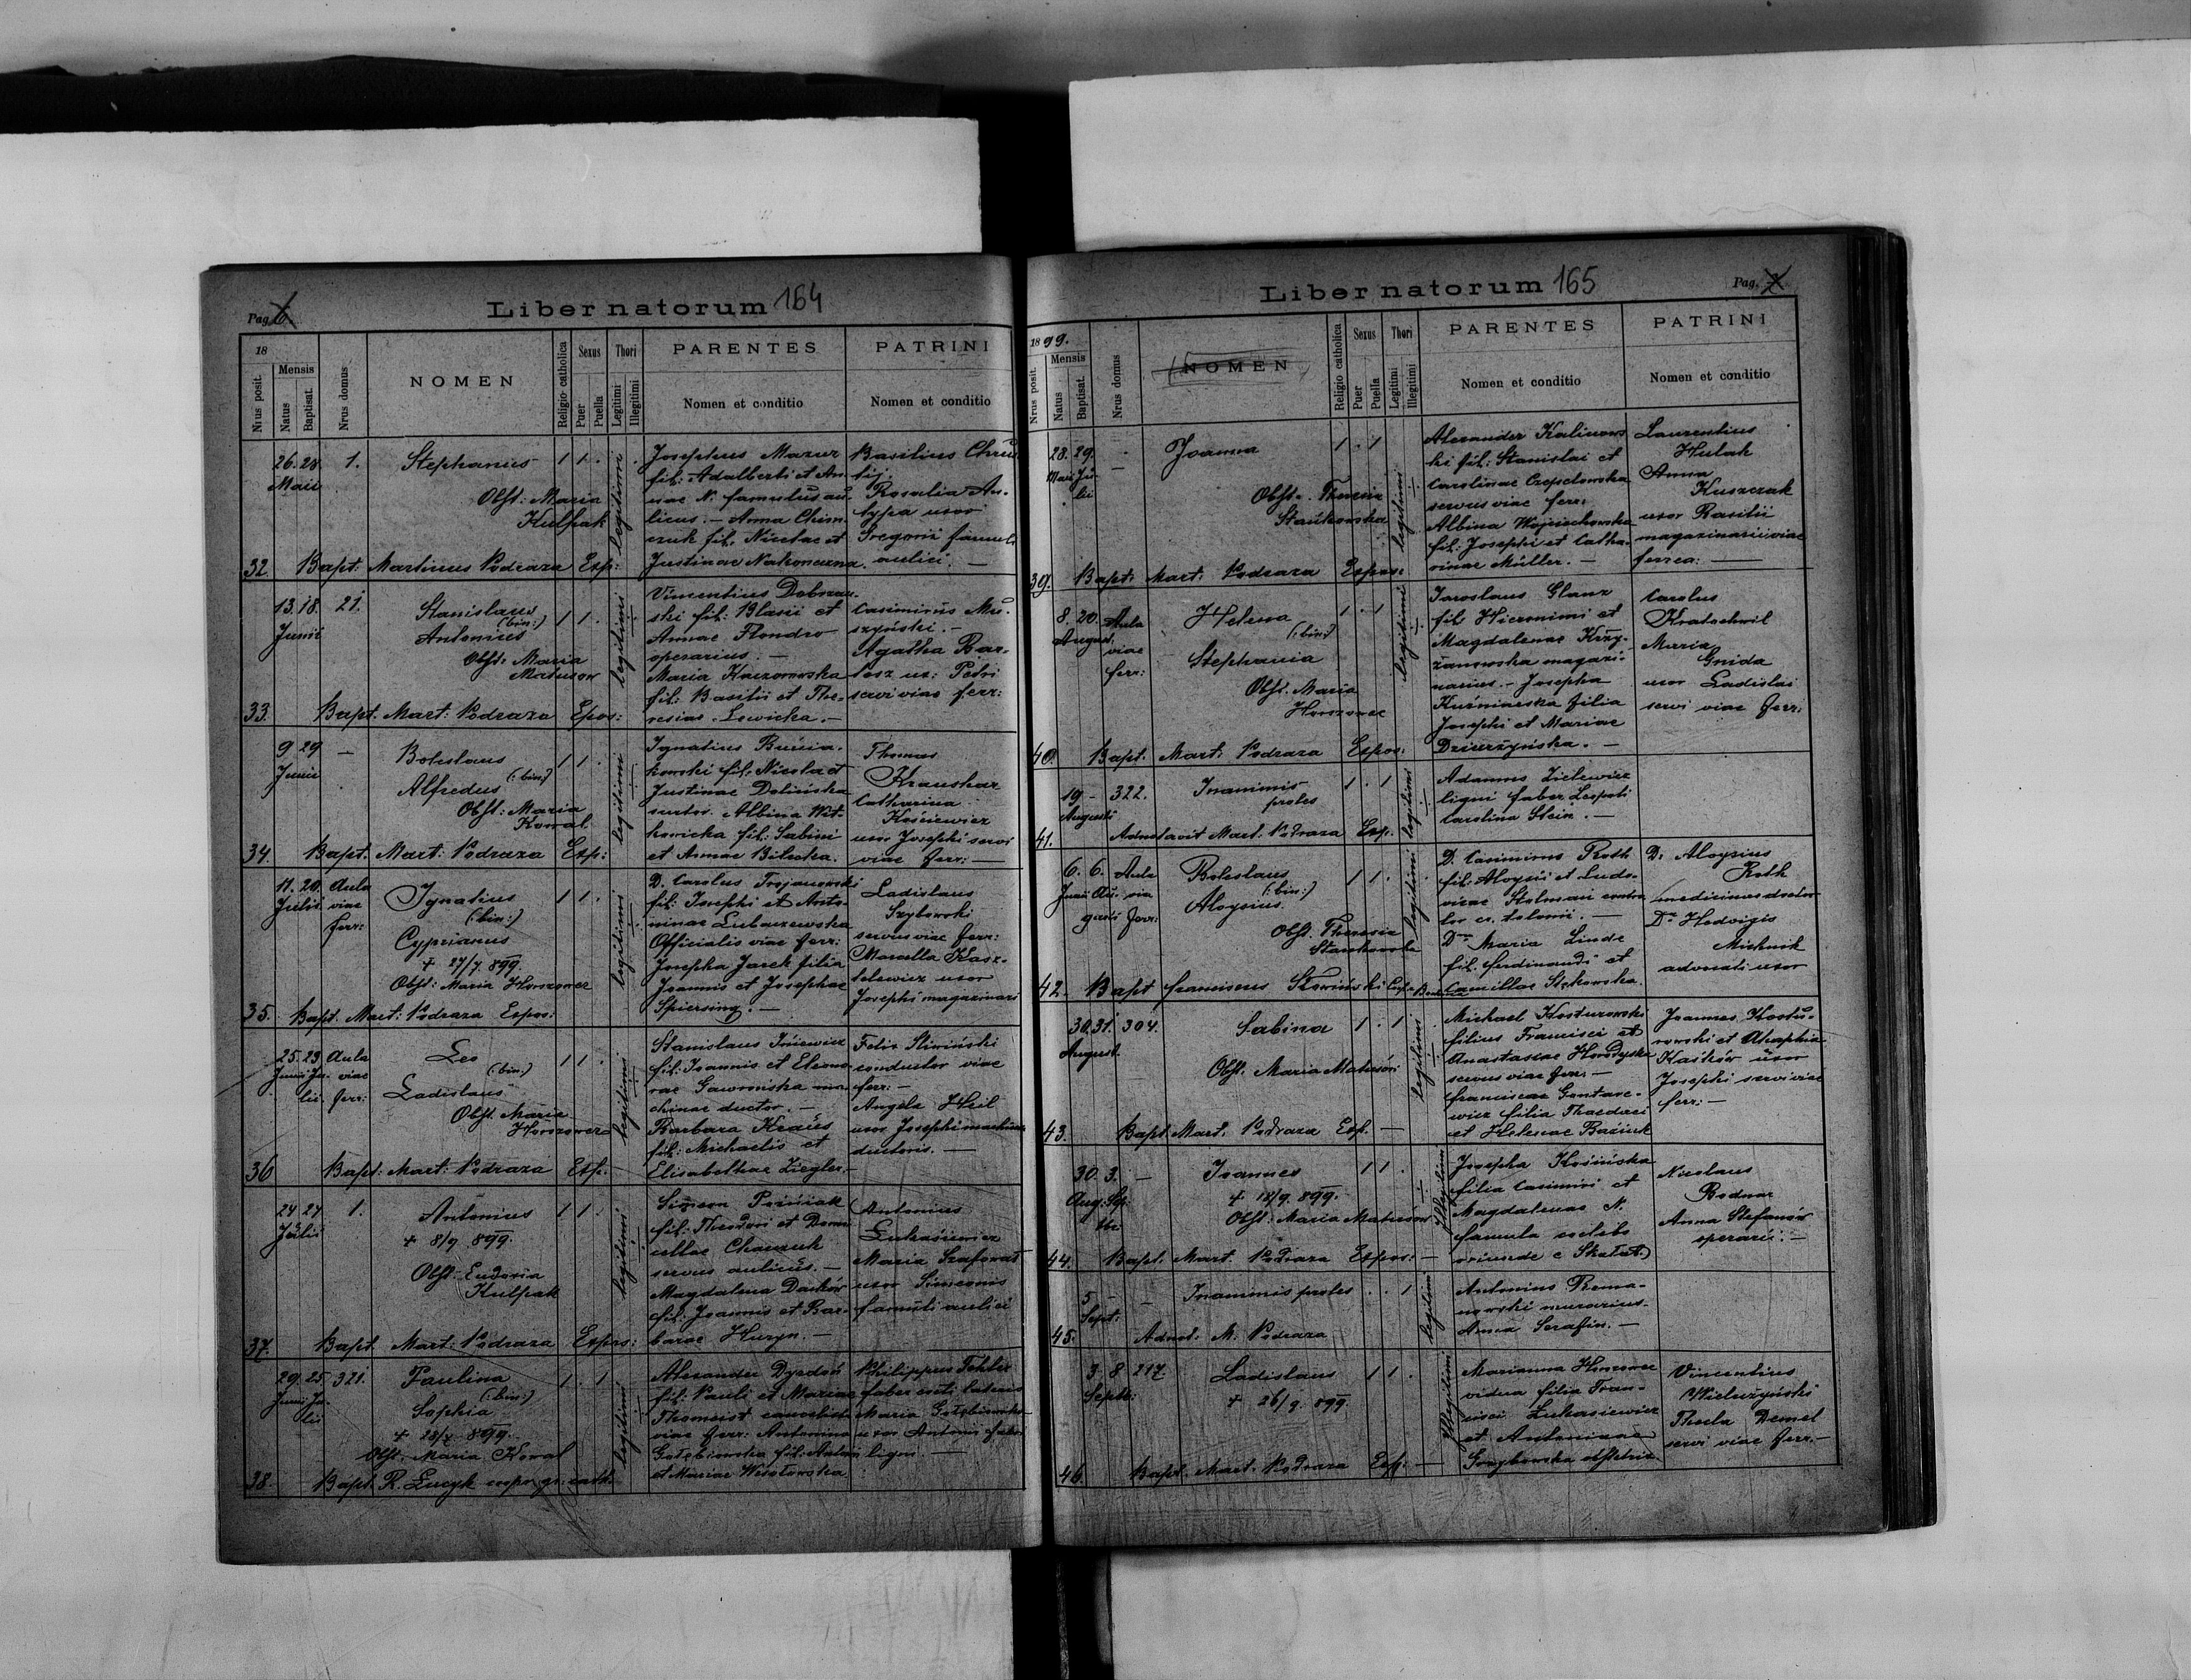 Pag. 6.
Liber natorum 164
18
Nrus posit.
Mensis
Natus
Baptisat.
Nrus domus
NOMEN
Religio catholica
Sexus
Puer
Puella
Thori
Legitimi
Illegitimi
PARENTES
Nomen et conditio
PATRINI
Nomen et conditio
32.
26. 28.
Maii
1.
Stephanus
Obst: Maria
Kulpak
1 1 .
legitimi
Josephus Mazur
fil: Adalberti et An-
nae N. famulus au-
licus. — Anna Chim-
czuk fil: Nicetae et
Justinae Nakoneczna.
Basilius
Rosalia An-
typa uxor
Gregorii famuli
aulici. —
Bapt: Martinus Podraza Exp:
33.
13. 18.
Junii
21.
Stanislaus
(:bin:)
Antonius
Obst: Maria
Matusow
1 1 .
legitimi
Vincentius Dobrzań-
ski fil: Blasii et
Annae Flondro
operarius. —
Maria Kaczorowska
fil: Basilii et The-
resiae Lewicka. —
Casimirus Mu-
szyński. —
Agatha Bar-
tosz ux: Petri
servi viae ferr:
Bapt. Mart: Podraza Expos:
34.
9 29
Junii
—
Boleslaus
(:bin:)
Alfredus
Obst: Maria
Kowal
1 1 .
legitimi
Ignatius
kowski fil: Nicolai et
Justinae Dolińska
sutor. Albina Wit-
kowicka fil: Sabini
et Annae Bilecka.
Thomas
Kraushar
Catharina
Kościewicz
uxor Josephi servi
viae ferr: —
Bapt. Mart: Podraza Exp:
35.
11. 20.
Julii
Aula
viae
ferr:
Ignatius
(:bin:)
Cyprianus
+ 27/7 899.
Obst: Maria Horszowez
1 1 .
legitimi
D. Carolus Trojanowski
fil: Josephi et Anto-
ninae Lubaczewska
Officialis viae ferr:
Josepha Jarek filia
Joannis et Josephae
Spiersing. —
Ladislaus
Szytowski
servus viae ferr:
Marcella Kasz-
telewicz uxor
Josephi magazinarii
Bapt. Mart: Podraza Expos:
36
25. 23.
Junii Ju-
lii
Aula
viae
ferr:
Leo
(:bin:)
Ladislaus
Obst. Maria
Horszowez
1 1 .
legitimi
Stanislaus Iżniewicz
fil: Joannis et Eleono-
rae Gawrońska ma-
chinae ductor. —
Barbara Kraus
fil: Michaelis et
Elisabethae Ziegler. —
Felix Sliwiński
conductor viae
ferr: —
Angela Heil
uxor Josephi machinae
ductoris. —
Bapt: Mart: Podraza Exp.
37.
24 27
Julii
1.
Antonius
+ 8/9 899.
Obst: Eudoxia
Kulpak
1 1 .
legitimi
Simeon
fil: Theodori et Domi-
cellae
servus aulicus. —
Magdalena
fil: Joannis et Bar-
barae Huryn. —
Antonius
Lukasiewicz
Maria Szafowat
uxor Simeonis
famuli aulici
Bapt. Mart: Podraza Expos:
38.
29. 25.
Junii Ju-
lii
321.
Paulina
(:bin:)
Sophia
+ 28/7 899.
Obst: Maria Kowal
1 . 1
legitimi
Alexander
fil: Pauli et Mariae
viae ferr: Antonina
Gołębiowska fil: Antoni
et Mariae Wesołowska
Philippus Tohler
faber
Maria Gołębiowska
uxor Antonii fabri
ligni —
Bapt R. Lucyk coop. gr. cath.
Liber natorum 165
Pag. 7
1899.
Nrus posit.
Mensis
Natus
Baptisat.
Nrus domus
NOMEN
Religio catholica
Sexus
Puer
Puella
Thori
Legitimi
Illegitimi
PARENTES
Nomen et conditio
PATRINI
Nomen et conditio
39.
28. 29.
Maii Ju-
lii
—
Joanna
Obst. Theresia
Stankowska
1 . 1
legitimi
Alexander Kalinows-
ki fil: Stanislai et
Carolinae
servus viae ferr:
Albina Wojciechowska
fil: Josephi et Catha-
rinae Müller. —
Laurentius
Hulak
Anna
Kuszczak
uxor Basilii
magazinarii viae
ferrea: —
Bapt: Mart: Podraza Expos:
40.
8. 20.
August.
Aula
viae
ferr:
Helena
(:bin:)
Stephania
Obst. Maria
Horszowez
1 . 1
legitimi
Jaroslaus Glanz
fil Hieronimi et
Magdalenae Krzy-
żanowska magazi-
narius. — Josepha
Kuźniarska filia
Josephi et Mariae
Dziurżyńska. —
Carolus
Kratochwil
Maria
Gnida
uxor Ladislai
servi viae ferr:
Bapt. Mart: Podraza Expos:
41.
19 —
Augusti
322.
Inanimis
proles
1 . 1
legitimi
Adamus Zielewicz
ligni faber Leopoli
Carolina Stein. —
Adnotavit Mart. Podraza Exp.
42.
6. 6.
Junii Au-
gusti
Aula
via
ferr:
Boleslaus
(:bin:)
Aloysius.
Obst. Theresia
Stankowska
1 1 .
legitimi
D. Casimirus Roth
fil: Aloysii et Ludo-
vicae Stolman contra-
lor telonii. —
Dna Maria Linde
fil. Ferdinandi et
Camillae
D. Aloysius
Roth
medicinae doctor
Dna Hedvigis
Michnik
advocati uxor
Bapt Franciscus Słowiński
43.
30. 31.
August.
304.
Sabina
Obst. Maria Matusów
1 . 1
legitimi
Michael Kosturowski
filius Francisci et
Anastasiae Horodyska
servus viae ferr: —
Franciscae Gontare-
wicz filia Thaedaei
et Helenae
Joannes Kostu-
rowski et Ahaphia
uxor
Josephi servi viae
ferr: —
Bapt. Mart. Podraza Exp. —
44.
30. 3.
Aug. Sep-
tbr
—
Joannes
+ 18/9. 899.
Obst: Maria Matusów
1 1 .
Illegitimi
Josepha Kosińska
filia Casimiri et
Magdalenae N.
famula coelebs
oriunde e Skałat.
Nicolaus
Bodnar
Anna Stefanów
operarii: —
Bapt. Mart. Podraza Expos: —
45.
5 —
Sept:
—
Inanimis proles
. . 1
legitimi
Antonius Roma-
nowski murarius.
Anna Serafin. —
Adnot. M. Podraza
46.
3 8
Septb:
217.
Ladislaus
+ 26/9. 899
1 1 .
Illegitimi
Marianna Horszowez
vidua filia Fran-
cisci Łukasiewicz
et Antoninae
Grzybowska obstetrix.
Vincentius
Wieluzyński
Thecla Demel
servi viae ferr. —
Bapt. Mart. Podraza Exp: —